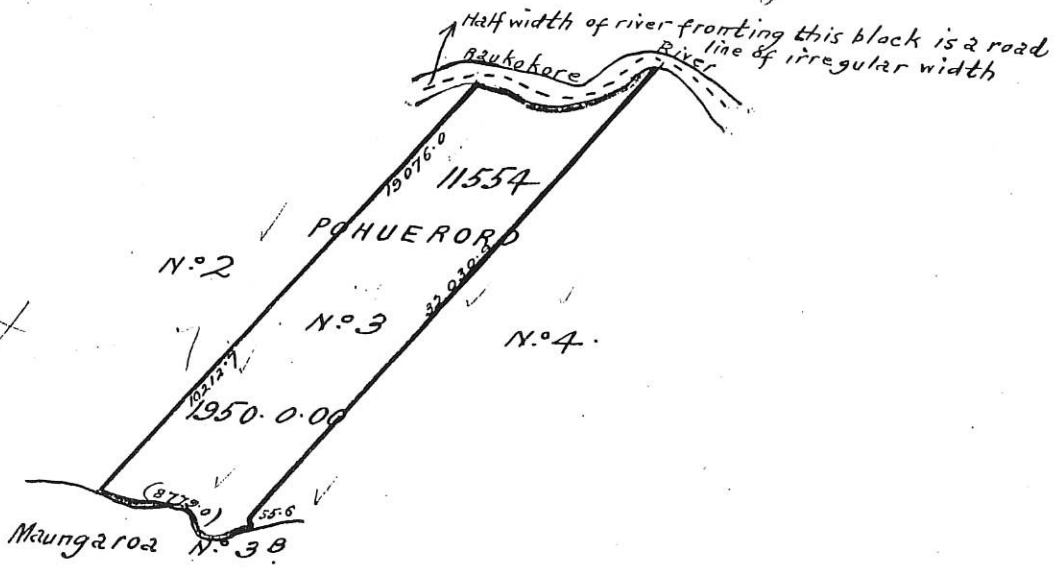 Half width of river fronting this block is a road
line of irregular width
Raukokore River
19076.0
11554
POHUERORO
No. 2
32030.9
No. 3
No. 4.
10212.7
1950.0.00
(8779.0)
55.6
Maungaroa No. 3B